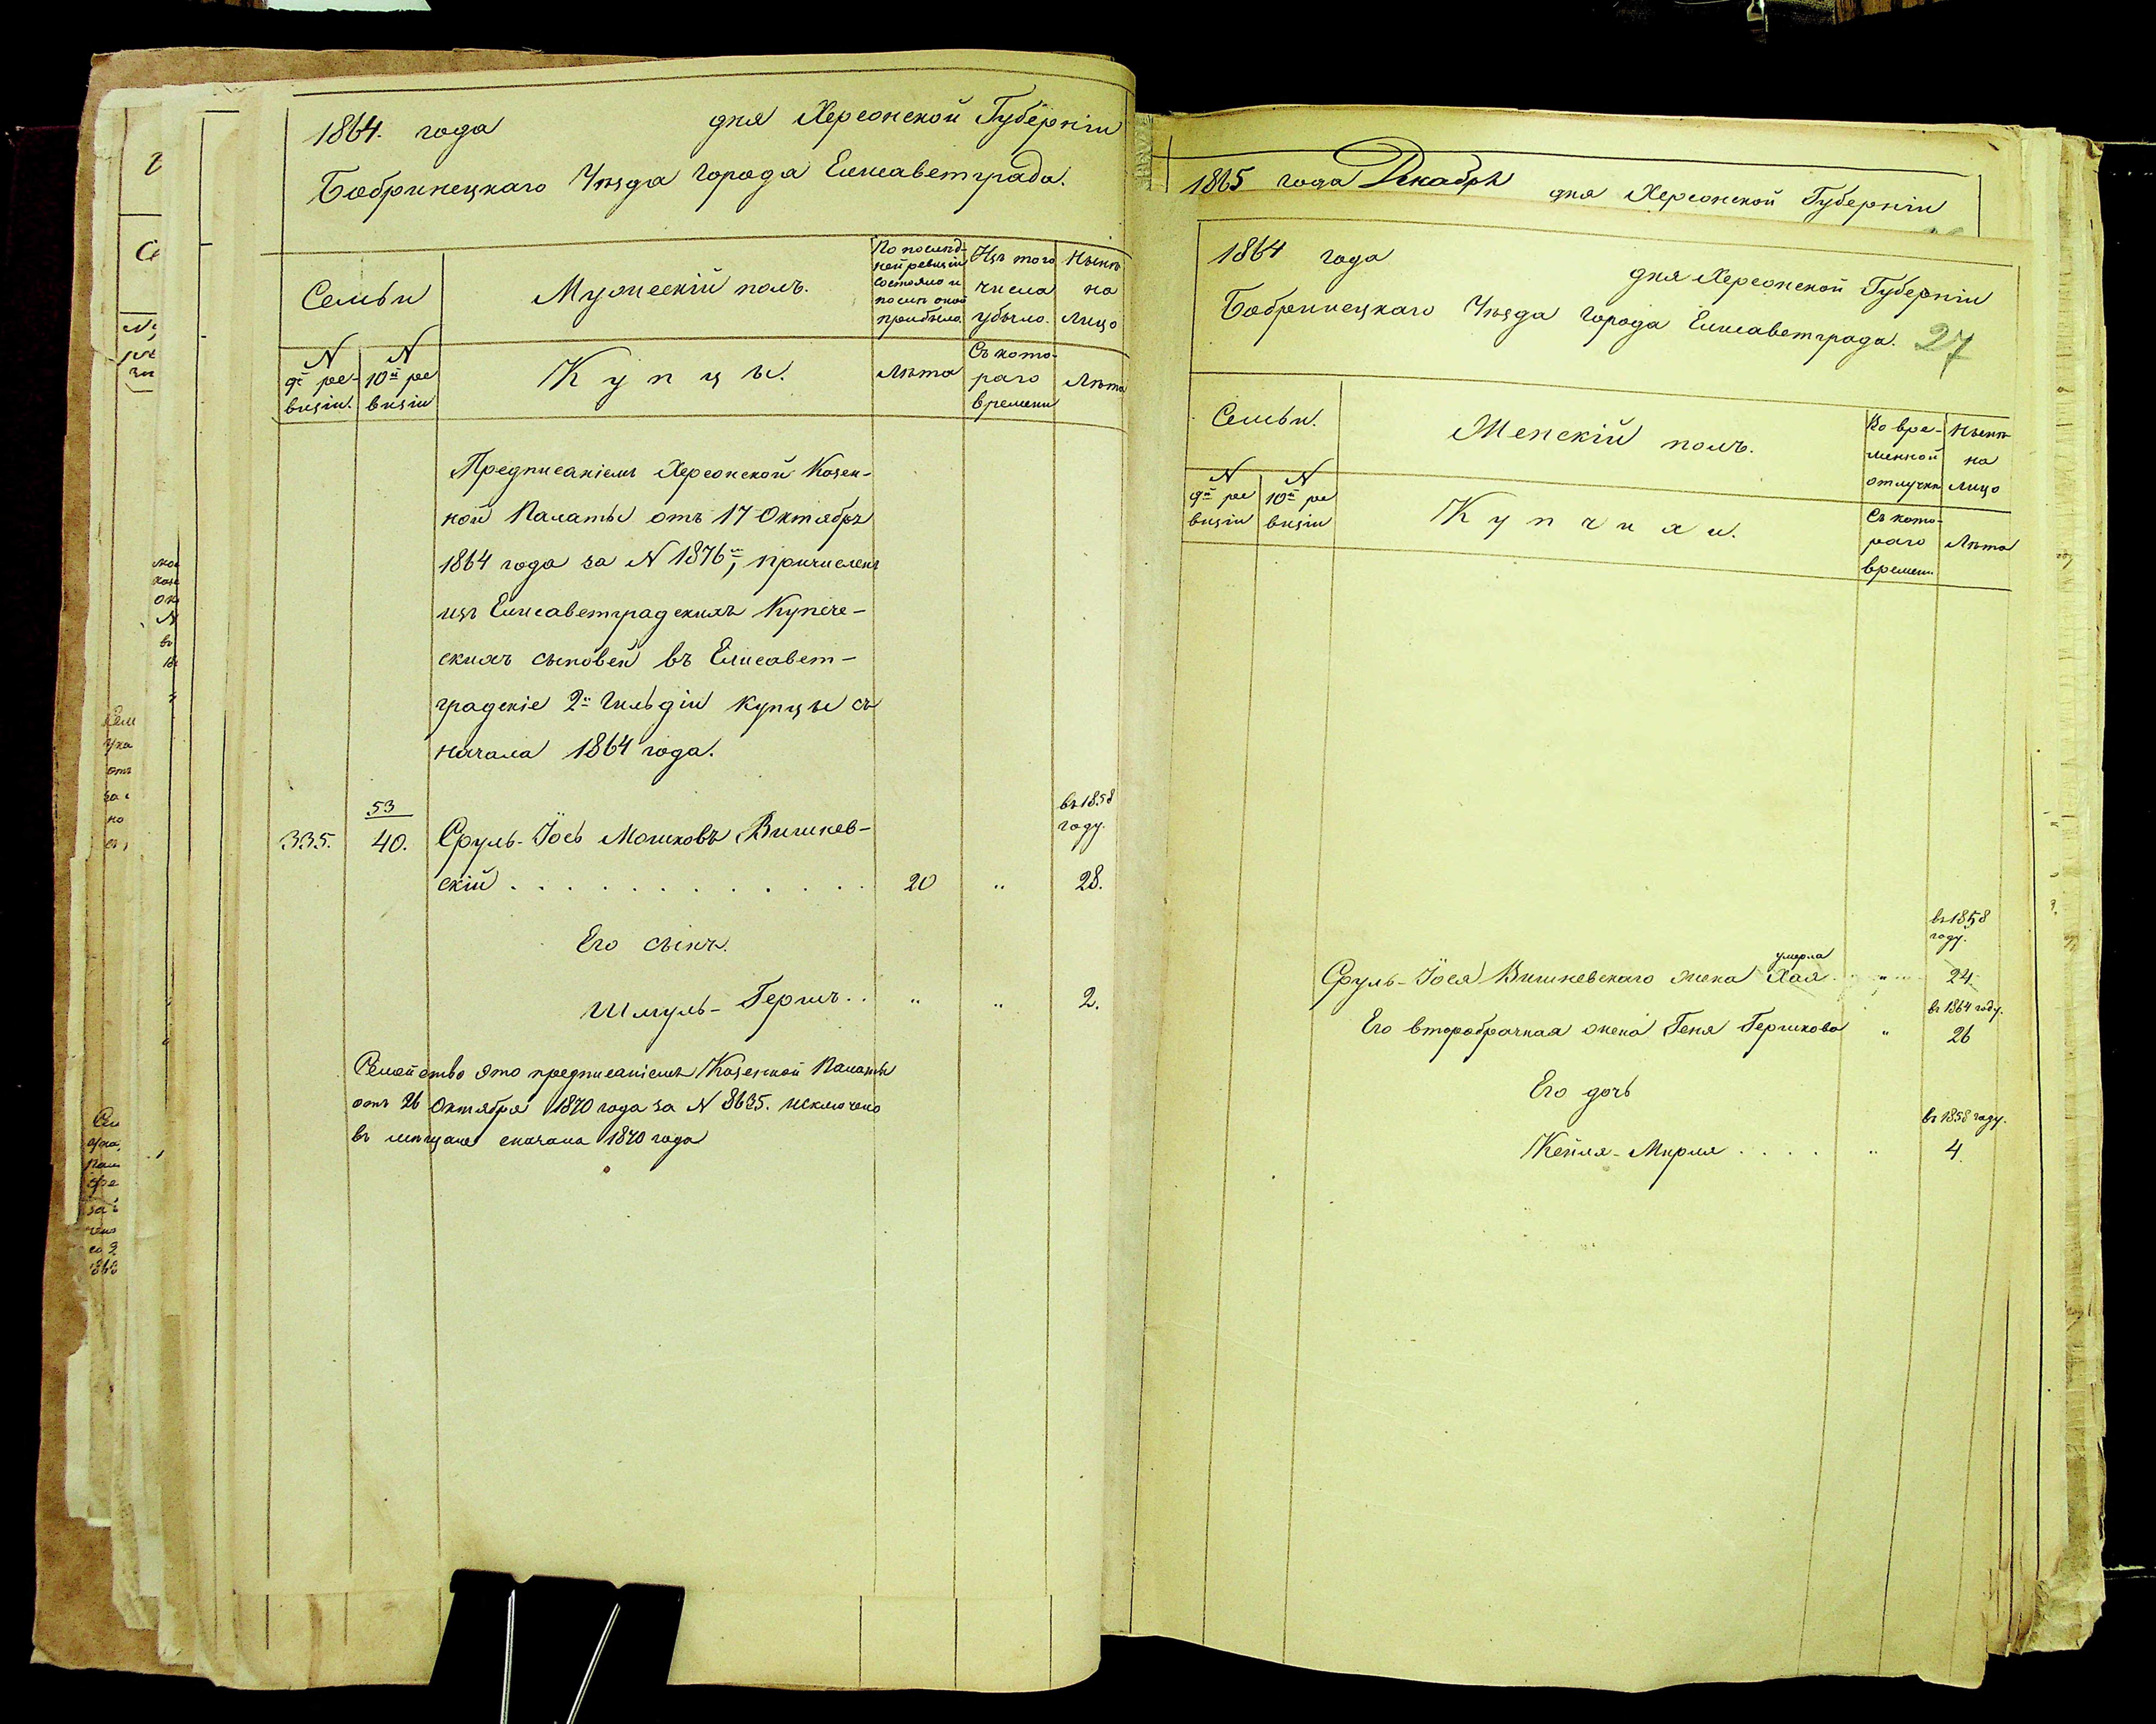 1864. года дня Херсонской Губерніи
Бобринецкаго Уѣзда Города Елисаветграда.
Семьи
Мужескій полъ.
По послѣд-
ней ревизіи
состояло и
послѣ оной
прибыло.
Изъ того
числа
убыло.
Нынѣ
на
лицо
N
9й ре-
визіи.
N
10й ре
визіи
Купцы.
Лѣта
Съ кото-
раго
времени
Лѣта
Предписаніемъ Херсонской Казен-
ной Палаты отъ 17 Октября
1864 года за N 1876м, причисленъ
изъ Елисаветградскихъ Купече-
скихъ сыновей въ Елисавет-
градскіе 2й Гильдіи купцы съ
начала 1864 года.
53
въ 1858
году.
335. 40. Сруль-Іось Мошковъ Вишнев-
скій . . . . . . . . . . . . 20 " 28.
Его сынъ.
Шмуль-Гершъ . . " " 2.
Семейство это предписаніемъ Казенной Палаты
отъ 26 Октября 1870 года за N 8635. исключено
въ мѣщане сначала 1870 года
1865 года Декабря дня Херсонской Губерніи
1864 года
дня Херсонской Губерніи
Бобринецкаго Уѣзда Города Елисаветграда. 27
Семьи.
Женскій полъ.
Во вре-
менной
отлучкѣ
Нынѣ
на
лицо
N
9й ре
визіи
N
10й ре
визіи
Купчихи.
Съ кото-
раго
времени.
Лѣта
въ 1858
году.
умерла
Сруль-Іося Вишневскаго жена Хая . . " 24.
въ 1864 году.
Его второбрачная жена Геня Гершкова " 26
Его дочь
въ 1858 году.
Кейля-Мирля . . . . " 4.